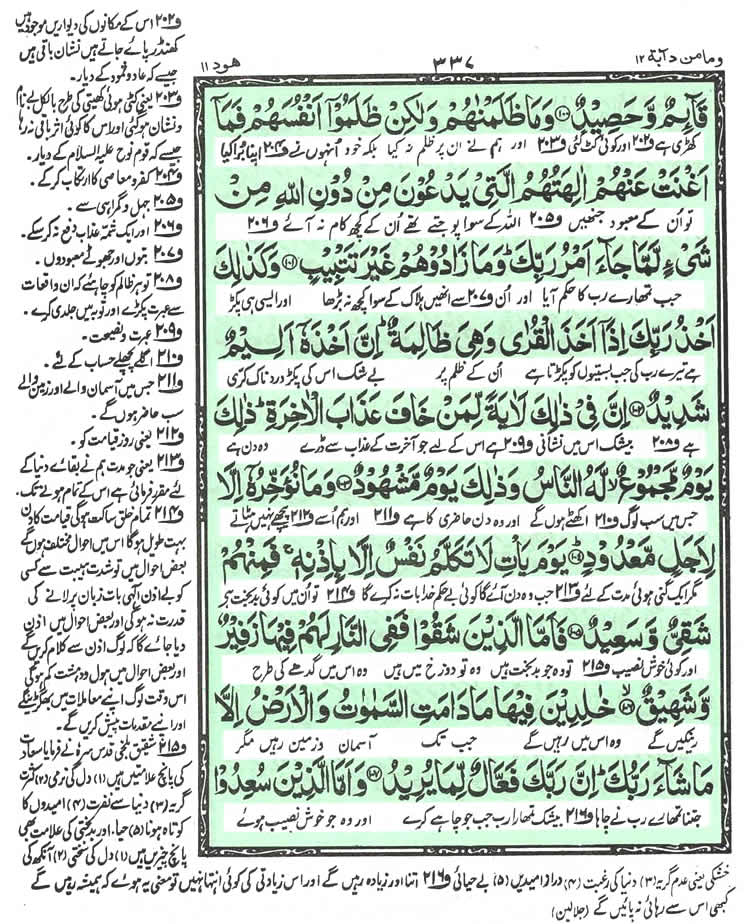 وما من دآبة ١٢
٣٣٧
هود ١١
قَآئِمٌ وَّحَصِيْدٌ ۝۱۰۰ وَمَا ظَلَمْنٰهُمْ وَلٰكِنْ ظَلَمُوْٓا اَنْفُسَهُمْ فَمَآ
کھڑی ہے ف۲۰۲ اور کوئی کٹ گئی ف۲۰۳ اور ہم نے ان پر ظلم نہ کیا بلکہ خود انہوں نے ف۲۰۴ اپنا برا کیا
اَغْنَتْ عَنْهُمْ اٰلِهَتُهُمُ الَّتِيْ يَدْعُوْنَ مِنْ دُوْنِ اللّٰهِ مِنْ
تو ان کے معبود جنھیں ف۲۰۵ اللہ کے سوا پوجتے تھے اُن کے کچھ کام نہ آئے ف۲۰۶
شَيْءٍ لَّمَّا جَآءَ اَمْرُ رَبِّكَ ؕ وَمَا زَادُوْهُمْ غَيْرَ تَتْبِيْبٍ ۝۱۰۱ وَكَذٰلِكَ
جب تمھارے رب کا حکم آیا اور اُن ف۲۰۷ سے انھیں ہلاک کے سوا کچھ نہ بڑھا اور ایسی ہی پکڑ
اَخْذُ رَبِّكَ اِذَآ اَخَذَ الْقُرٰى وَهِيَ ظَالِمَةٌ ؕ اِنَّ اَخْذَهٗٓ اَلِيْمٌ
ہے تیرے رب کی جب بستیوں کو پکڑتا ہے اُن کے ظلم پر بے شک اس کی پکڑ دردناک کرّی
شَدِيْدٌ ۝۱۰۲ اِنَّ فِيْ ذٰلِكَ لَاٰيَةً لِّمَنْ خَافَ عَذَابَ الْاٰخِرَةِ ؕ ذٰلِكَ
ہے ف۲۰۸ بیشک اس میں نشانی ف۲۰۹ ہے اس کے لیے جو آخرت کے عذاب سے ڈرے وہ دن ہے
يَوْمٌ مَّجْمُوْعٌ ۙ لَّهُ النَّاسُ وَذٰلِكَ يَوْمٌ مَّشْهُوْدٌ ۝۱۰۳ وَمَا نُؤَخِّرُهٗٓ اِلَّا
جس میں سب لوگ ف۲۱۰ اکٹھے ہوں گے اور وہ دن حاضری کا ہے ف۲۱۱ اور ہم اُسے ف۲۱۲ پیچھے نہیں ہٹاتے
لِاَجَلٍ مَّعْدُوْدٍ ۝۱۰۴ يَوْمَ يَاْتِ لَا تَكَلَّمُ نَفْسٌ اِلَّا بِاِذْنِهٖ ۚ فَمِنْهُمْ
مگر ایک گنی ہوئی مدت کے لئے ف۲۱۳ جب وہ دن آئے گا کوئی بے حکم خدا بات نہ کرے گا ف۲۱۴ تو اُن میں کوئی بدبخت ہے
شَقِيٌّ وَّسَعِيْدٌ ۝۱۰۵ فَاَمَّا الَّذِيْنَ شَقُوْا فَفِي النَّارِ لَهُمْ فِيْهَا زَفِيْرٌ
اور کوئی خوش نصیب ف۲۱۵ تو وہ جو بدبخت ہیں وہ تو دوزخ میں ہیں وہ اس میں گدھے کی طرح
وَّشَهِيْقٌ ۝۱۰۶ۙ خٰلِدِيْنَ فِيْهَا مَا دَامَتِ السَّمٰوٰتُ وَالْاَرْضُ اِلَّا
رینکیں گے وہ اس میں رہیں گے جب تک آسمان و زمین رہیں مگر
مَا شَآءَ رَبُّكَ ؕ اِنَّ رَبَّكَ فَعَّالٌ لِّمَا يُرِيْدُ ۝۱۰۷ وَاَمَّا الَّذِيْنَ سُعِدُوْا
جتنا تمھارے رب نے چاہا ف۲۱۶ بیشک تمھارا رب جب جو چاہے کرے اور وہ جو خوش نصیب ہوئے
ف۲۰۲ اس کے مکانوں کی دیواریں موجود ہیں
کھنڈر پائے جاتے ہیں نشان باقی ہیں
جیسے کہ عاد و ثمود کے دیار۔
ف۲۰۳ یعنی کٹی ہوئی کھیتی کی طرح بالکل بے نام
و نشان ہوگئی اور اس کا کوئی اثر باقی نہ رہا
جیسے کہ قوم نوح علیہ السلام کے دیار۔
ف۲۰۴ کفر و معاصی کا ارتکاب کر کے۔
ف۲۰۵ جہل و گمراہی سے۔
ف۲۰۶ اور ایک شمّہ عذاب دفع نہ کر سکے۔
ف۲۰۷ بتوں اور جھوٹے معبودوں۔
ف۲۰۸ تو ہر ظالم کو چاہئے کہ ان واقعات
سے عبرت پکڑے اور توبہ میں جلدی کرے۔
ف۲۰۹ عبرت و نصیحت۔
ف۲۱۰ اگلے پچھلے حساب کے لئے۔
ف۲۱۱ جس میں آسمان والے اور زمین والے
سب حاضر ہوں گے۔
ف۲۱۲ یعنی روز قیامت کو۔
ف۲۱۳ یعنی جو مدت ہم نے بقائے دنیا کے
لئے مقرر فرمائی ہے اس کے تمام ہونے تک۔
ف۲۱۴ تمام خلق ساکت ہوگی قیامت کا دن
بہت طویل ہوگا اس میں احوال مختلف ہوں گے
بعض احوال میں تو شدت ہیبت سے کسی
کو بے اذن الٰہی بات زبان پر لانے کی
قدرت نہ ہوگی اور بعض احوال میں اذن
دیا جائے گا کہ لوگ اذن سے کلام کریں گے
اور بعض احوال میں ہول و دہشت کم ہوگی
اس وقت لوگ اپنے معاملات میں جھگڑینگے
اور اپنے مقدمات پیش کریں گے۔
ف۲۱۵ شقیق بلخی قدس سرہٗ نے فرمایا سعادت
کی پانچ علامتیں ہیں (۱) دل کی نرمی (۲) کثرت
گریہ (۳) دنیا سے نفرت (۴) امیدوں کا
کوتاہ ہونا (۵) حیا، اور بدبختی کی علامت بھی
پانچ چیزیں ہیں (۱) دل کی سختی (۲) آنکھ کی
خشکی یعنی عدم گریہ (۳) دنیا کی رغبت (۴) دراز امیدیں (۵) بے حیائی ف۲۱۶ اتنا اور زیادہ رہیں گے اور اس زیادتی کی کوئی انتہا نہیں تو معنی یہ ہوئے کہ ہمیشہ رہیں گے
کبھی اس سے رہائی نہ پائیں گے (جلالین)